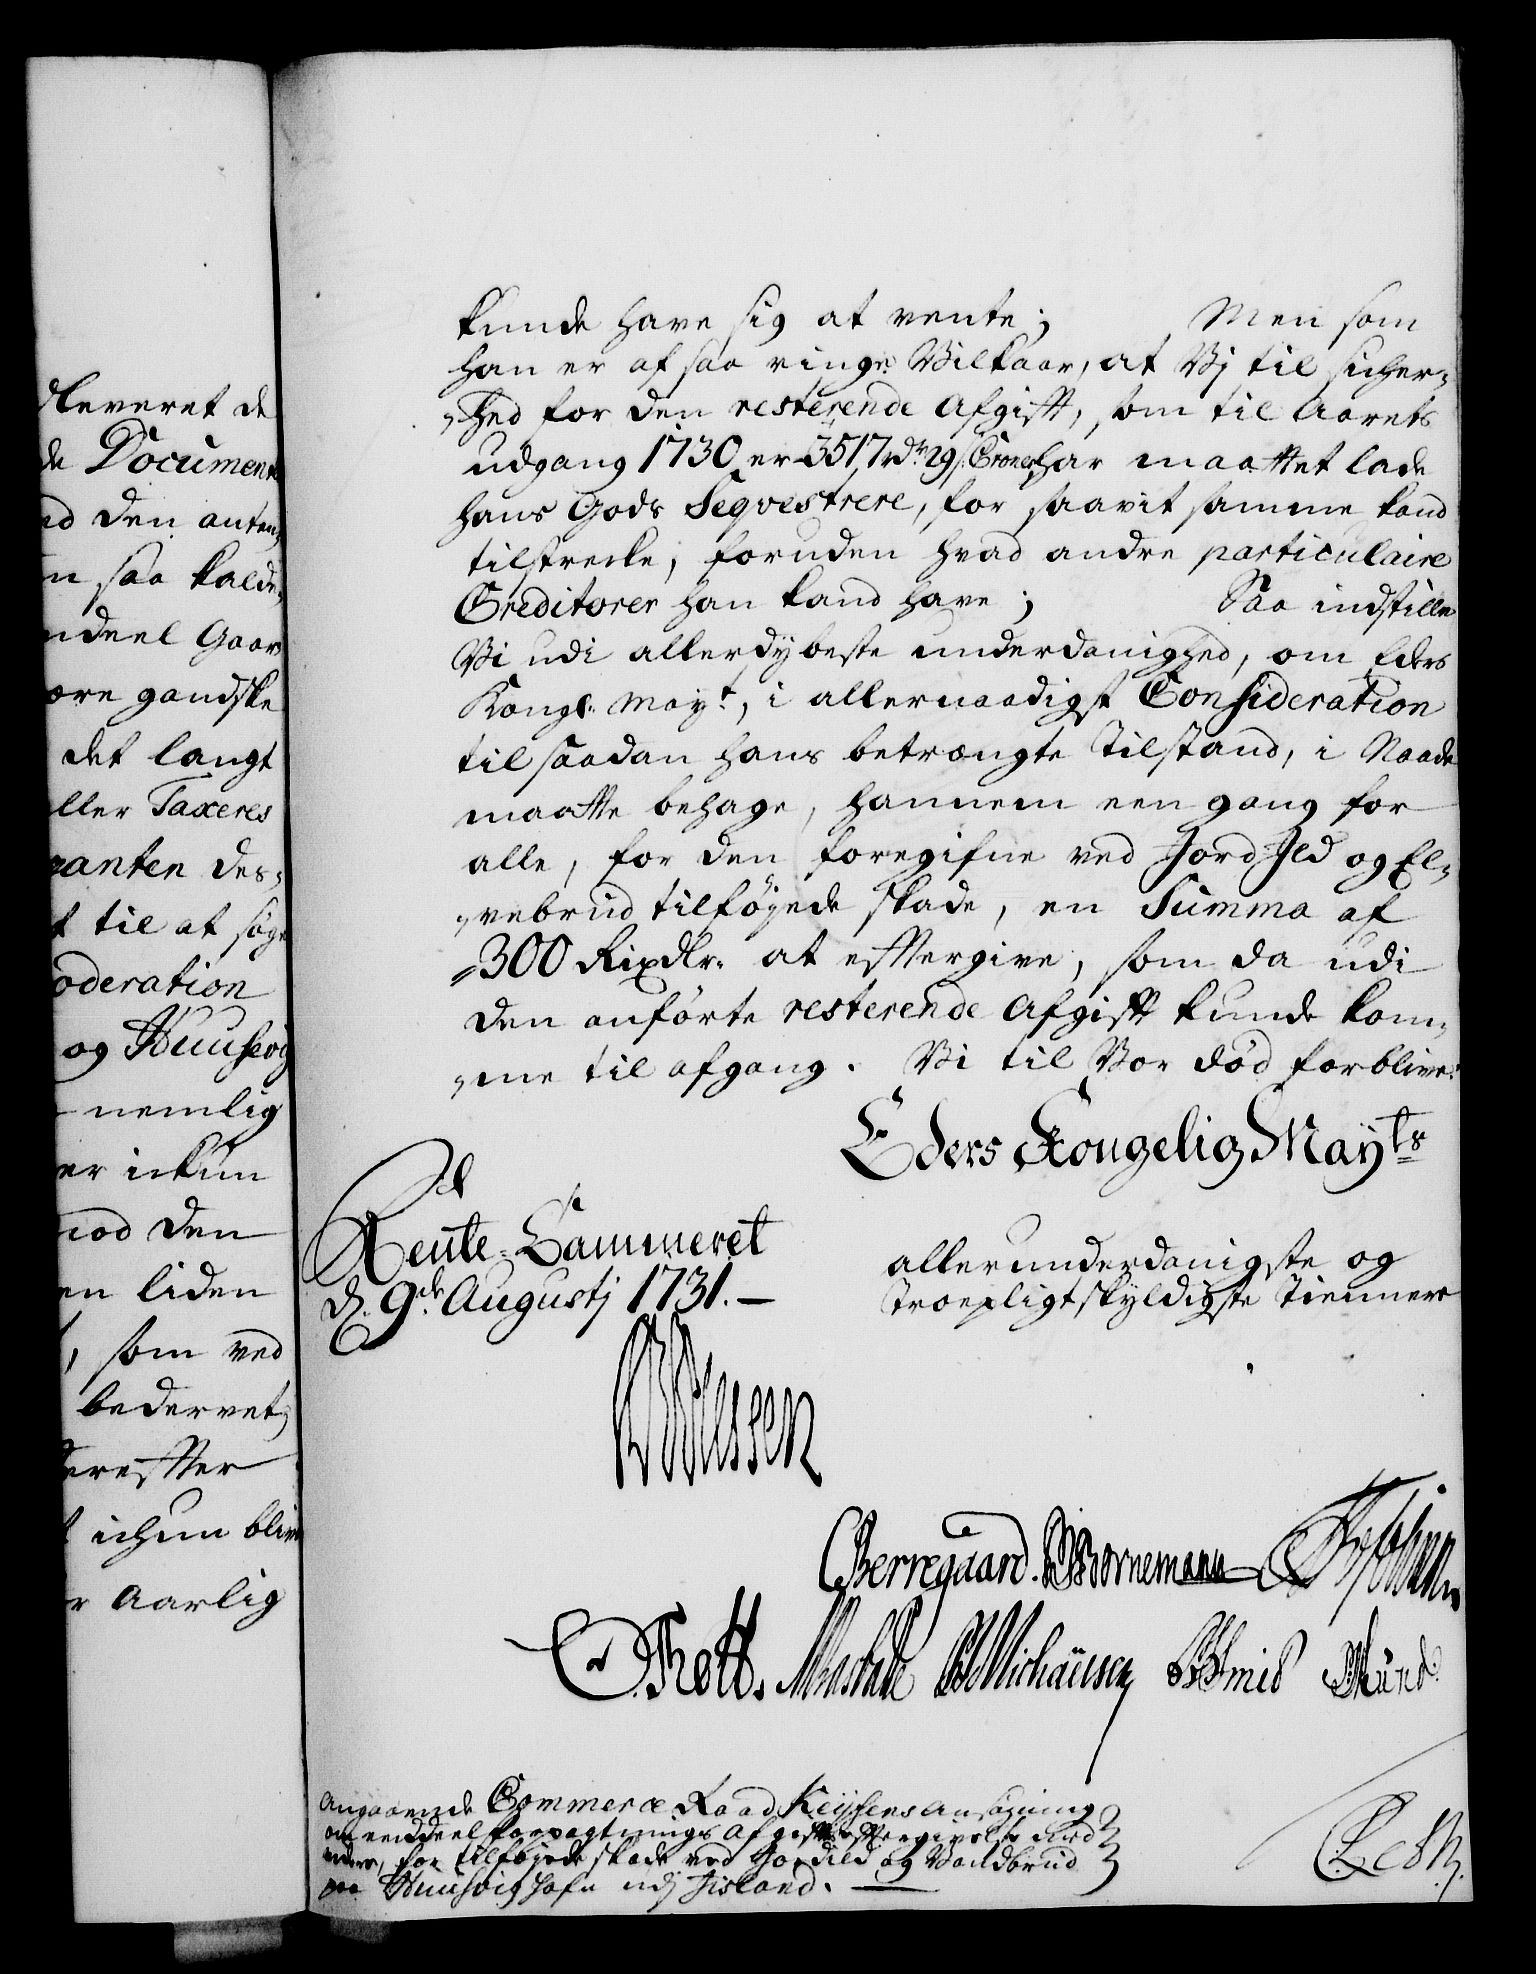 leveret de
de Document
ed den anten
n saa kalde
ndeel Gaar
ore gandske
det langt
ller Taxeres
anten des-
t til at søge
oderation
og Huusevig
nemlig
er ickun
mod den
en liden
, som ved
bedervet,
erefter
ichun blive
r Aarlig
kunde have sig at vente; Men som
han er af saa ringe Vilkaar, at Vj til sicher-
-hed for den resterende Afgift, som til Aarets
udgang 1730 er 3517 rdr 29 s. Croner, har maattet lade
hans Gods Seqvestrere, for saavit samme kand
tilstrecke, foruden hvad andre particulaire
Creditorer han kand have; Saa indstille
Vi udi allerdybeste underdanighed, om Eders
Kongl. Mayt., i allernaadigst Consideration
til saadan hans betrængte Tilstand, i Naade
maatte behage, hannem een gang for
alle, for den foregifne ved Jord Jld og El-
-vebrud tilføyede skade, en Summa af
300 Rixdlr. at eftergive, som da udi
den anførte resterende Afgift kunde kom-
-me til afgang. Vi til Vor død forblive:
Eders Kongelig Mayts
Rente-Cammeret
d. 9de Augustj 1731.
allerunderdanigste og
Troepligtskyldigste Tiennere
CBerregaard. Bornemann
OThott. BMichaelsen
Angaaende Commerce Raad Keysens Ansøgning
om eendeel forpagtnings Afgifts eftergivelse
for tilføyede skade ved Jordild og Vandbrud
paa Huusevig hafn udj Jisland.